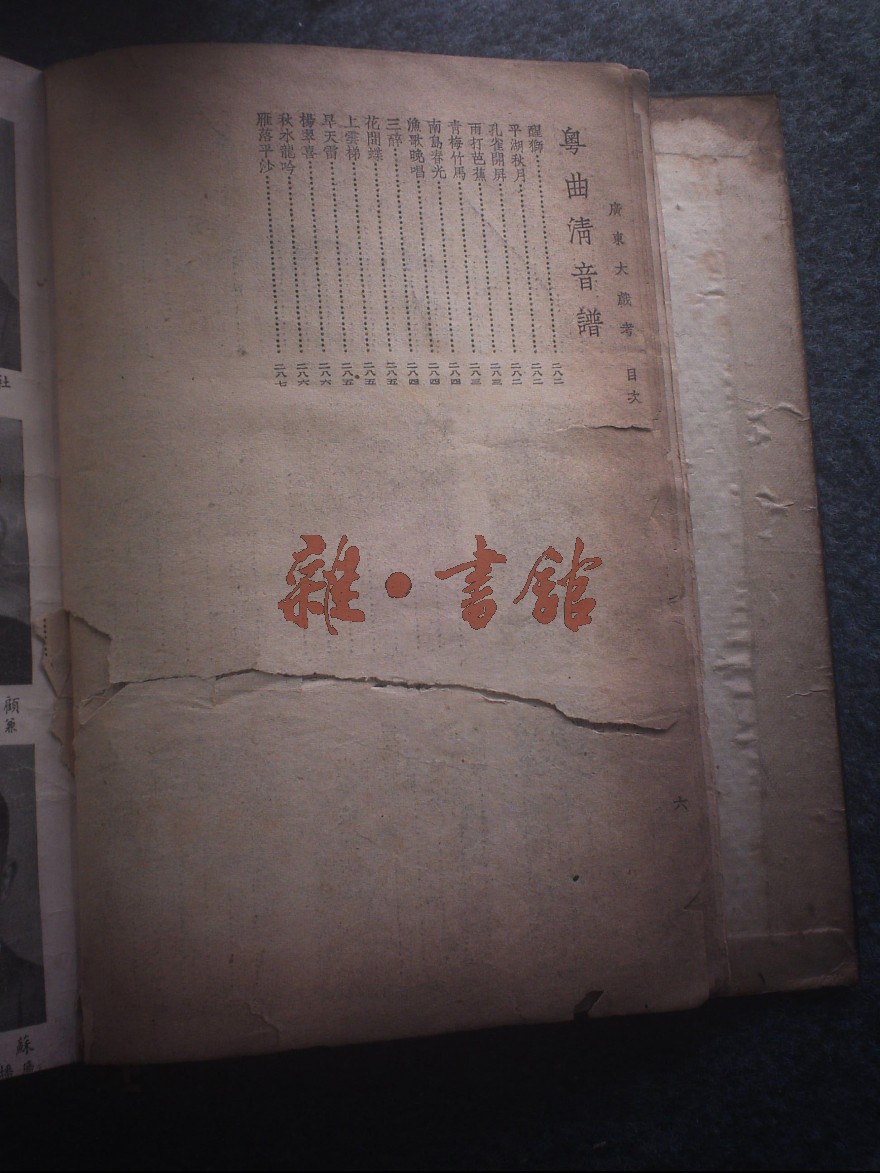 廣東大戲考 目次
粵曲清音譜
醒獅…………二八二
平湖秋月…………二八二
孔雀開屏…………二八二
雨打芭蕉…………二八三
青梅竹馬…………二八三
南島春光…………二八四
漁歌晚唱…………二八四
三醉…………二八四
花間蝶…………二八五
上雲梯…………二八五
旱天雷…………二八五
楊翠喜…………二八六
秋水龍吟…………二八六
雁落平沙…………二八七
六
雜·書館
社
顧
兼
蘇